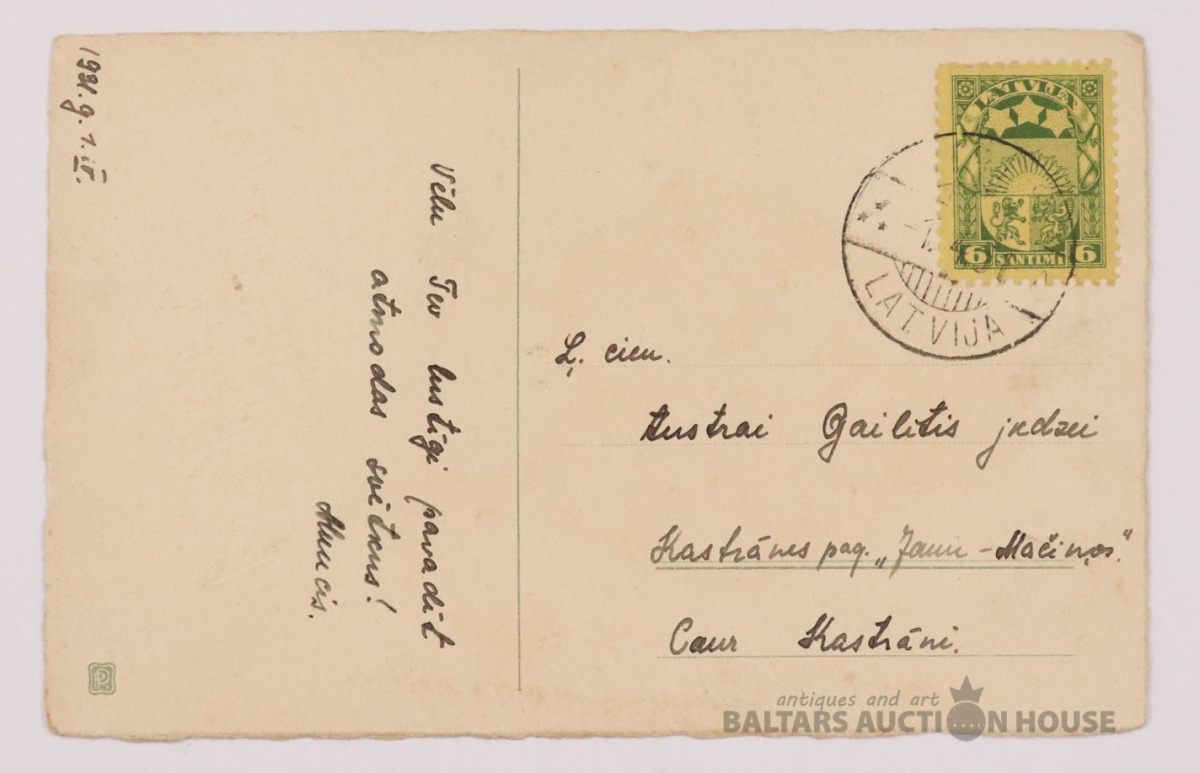 1931. g. 1. IV.
Vēlu Tev lustīgi pavadīt
atmodas svētkus!
LATVIJA
6 SANTIMI 6
LATVIJA
Ļ. cien.
Austrai Gailītis jkdzei
Kastrānes pag. „Jaun-Mačiņos."
Caur Kastrāni.
antiques and art
BALTARS AUCTION HOUSE